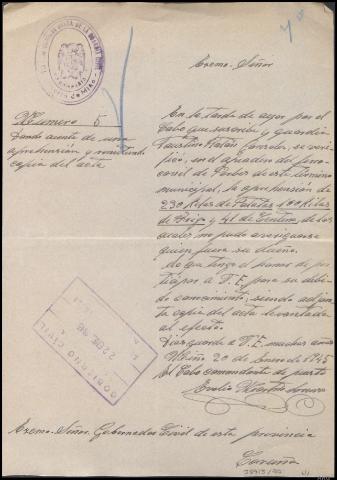 Numero 5
Dando cuenta de una
aprehensión y remitiendo
copia del acta
Excmo. Señor
En la tarde de ayer por el
Cabo que suscribe y guardia
Faustino, se veri-
ficó, en el apeadero del ferro-
carril de Perbes de este término
municipal, la aprehensión de
230 Kilos de Patatas 100 Kilos
de Trigo y 41 de Centeno, de los
cuales no pudo averiguarse
quien fuera su dueño.
Lo que tengo el honor de par-
ticipar a V.E. para su debi-
do conocimiento; siendo adjun-
ta copia del acta levantada
al efecto.
Dios guarde a V.E. muchos años
Miño 20 de Enero de 1945
El Cabo comandante de puesto
GOBIERNO CIVIL
22 ENE
Excmo. Señor Gobernador Civil de esta provincia
Coruña